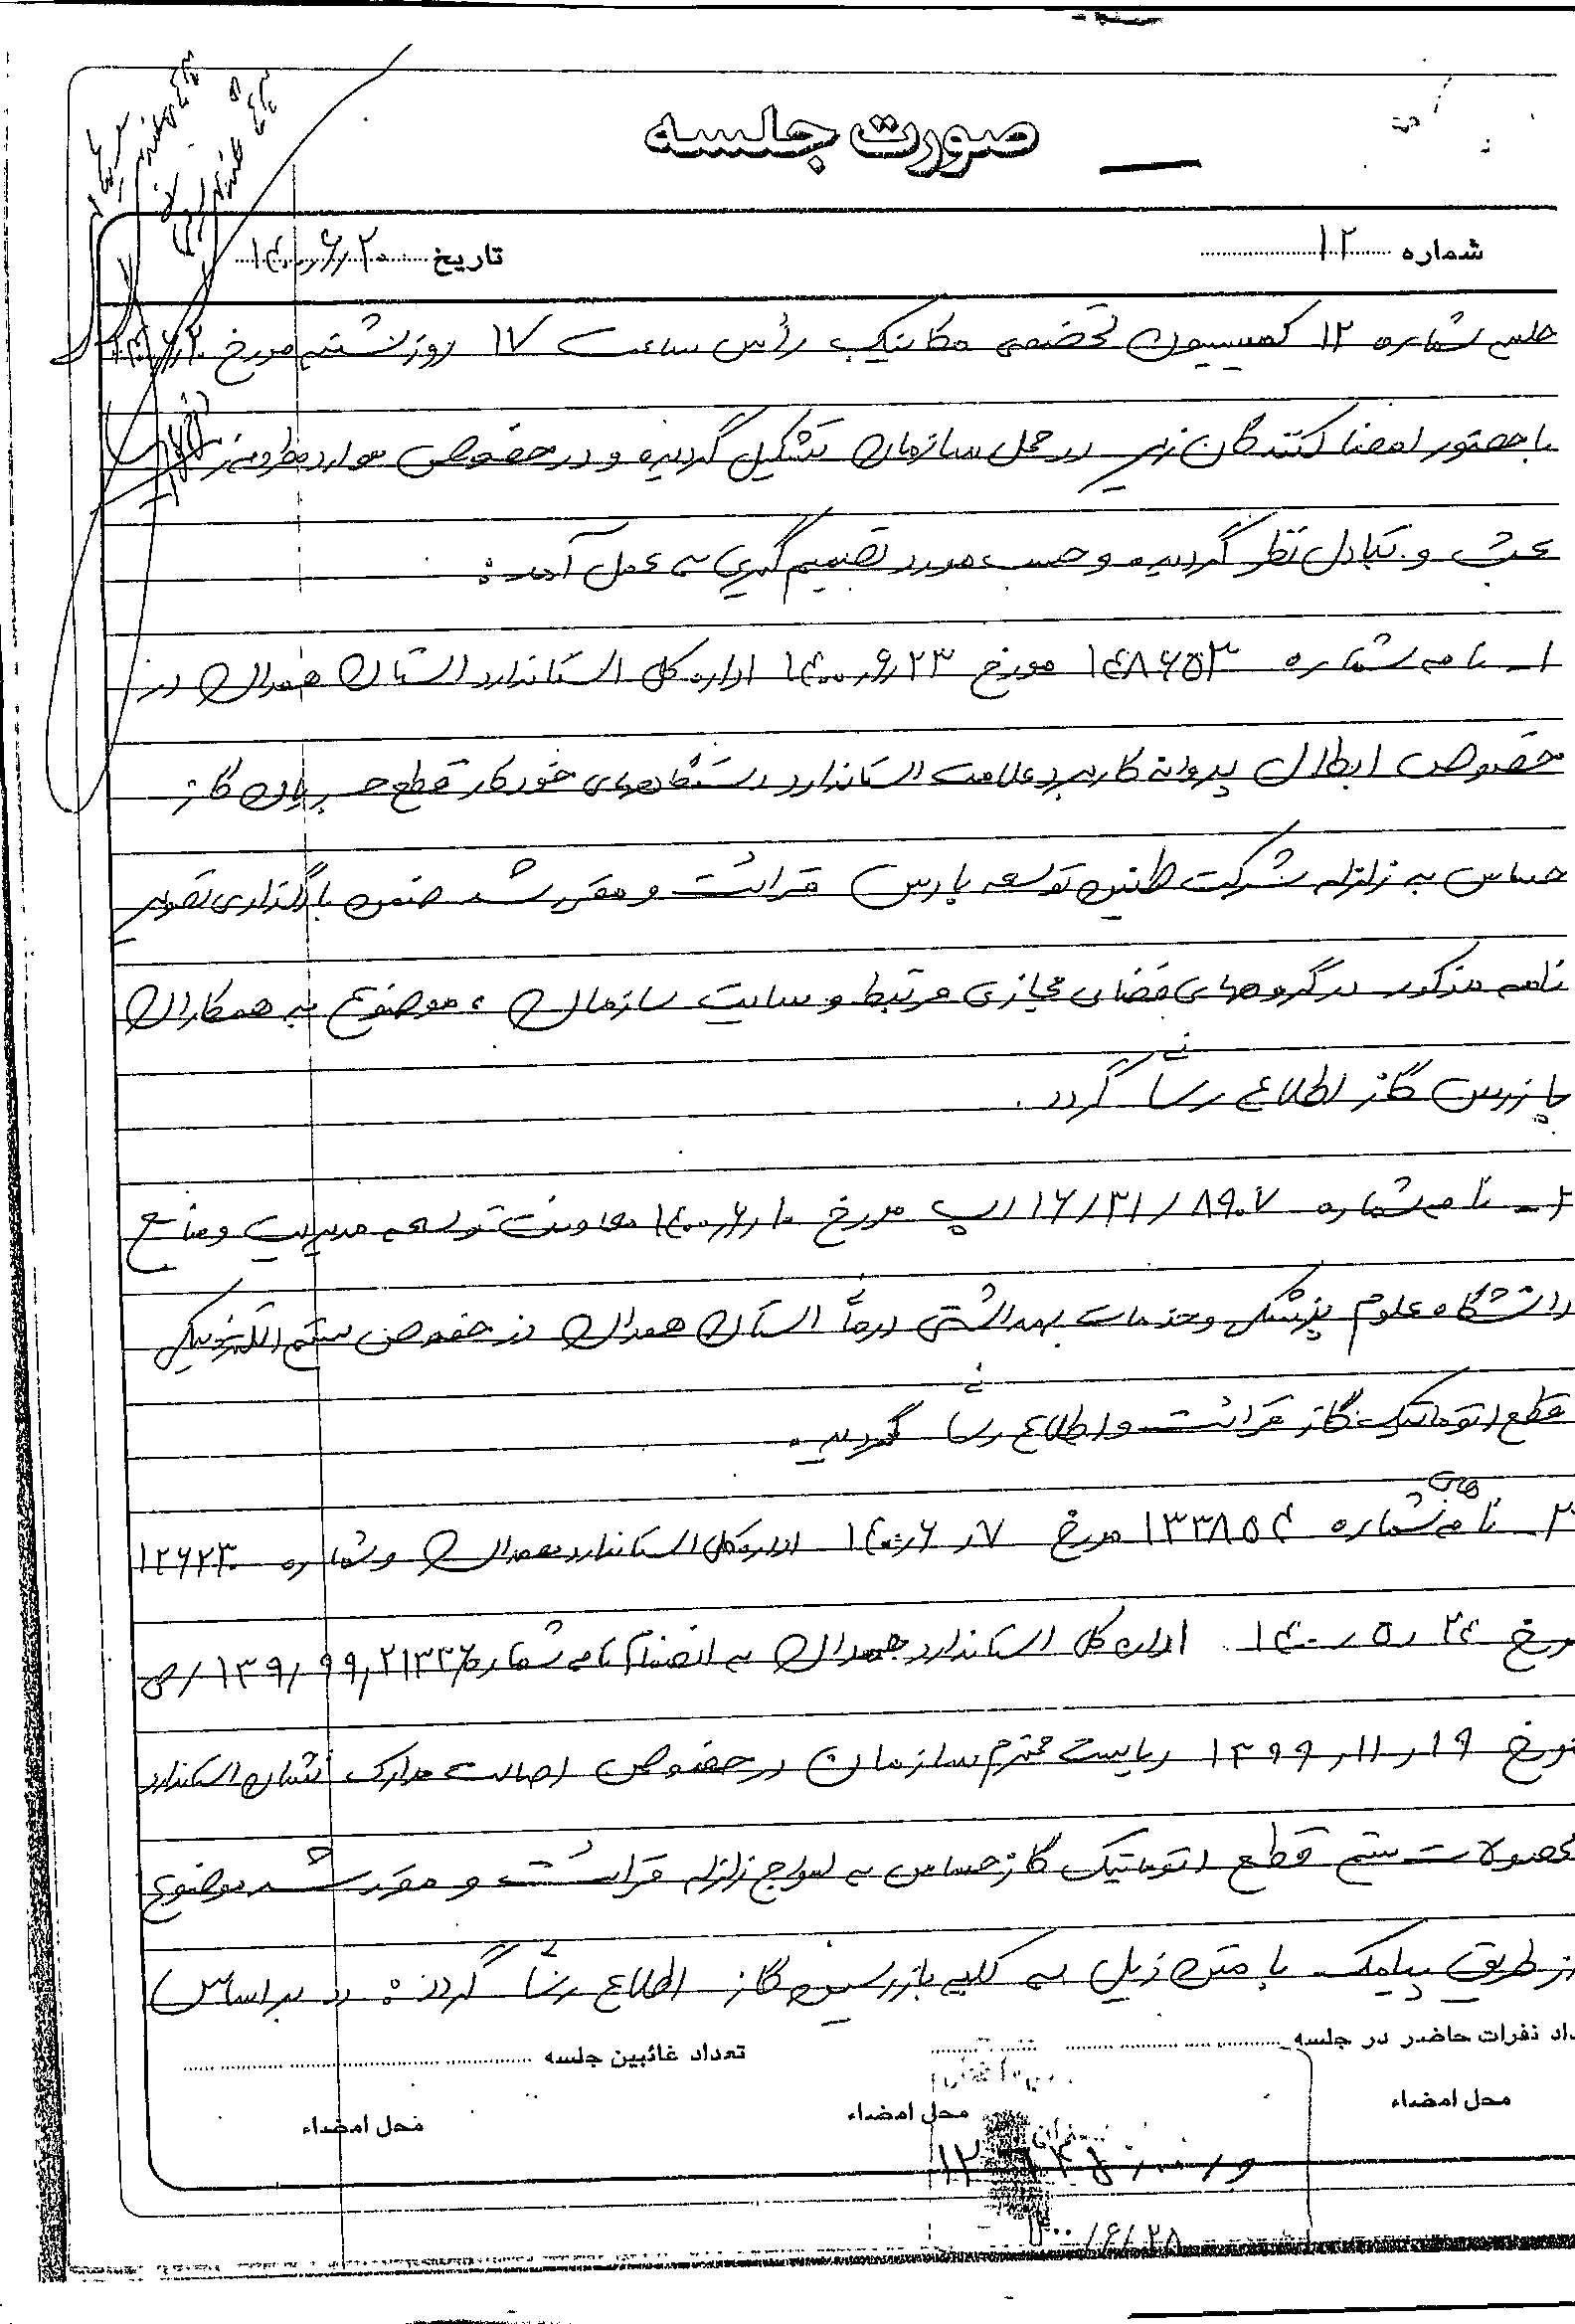 صورت جلسه
شماره ۱۲
تاریخ ۱۴۰۰٫۶٫۲۰
جلسه شماره ۱۲ کمیسیون تخصصی مکانیک رأس ساعت ۱۷ روز شنبه مورخ
با حضور امضا کنندگان زیر در محل سازمان تشکیل گردید و در خصوص موارد مطروحه
بحث و تبادل نظر گردید و حسب مورد تصمیم گیری به عمل آمد:
۱- نامه شماره ۱۴۸۶۵۳ مورخ ۱۴۰۰٫۶٫۲۳ اداره کل استاندارد استان همدان در
خصوص ابطال پروانه کاربرد علامت استاندارد دستگاههای خودکار قطع جریان گاز
حساس به زلزله شرکت طنین توسعه پارس قرائت و مقرر شد ضمن بارگذاری تصویر
نامه مذکور در گروههای فضای مجازی مرتبط و سایت سازمان، موضوع به همکاران
بازرس گاز اطلاع رسانی گردد.
۲- نامه شماره ۱۶/۳۱/۸۹۰۷/پ مورخ ۱۴۰۰٫۶٫۱۰ معاونت توسعه مدیریت و منابع
دانشگاه علوم پزشکی و خدمات بهداشتی درمانی استان همدان در خصوص سیستم الکترونیکی
قطع اتوماتیک گاز قرائت و اطلاع رسانی گردید.
۳- نامه های شماره ۱۳۳۸۵۴ مورخ ۱۴۰۰٫۶٫۷ اداره کل استاندارد همدان و شماره ۱۲۶۲۳۰
مورخ ۱۴۰۰٫۵٫۲۴ اداره کل استاندارد همدان به انضمام نامه شماره ۱۳۹٫۹۹٫۲۱۳۳۶/ص
مورخ ۱۳۹۹٫۱۱٫۱۹ ریاست محترم سازمان در خصوص اصالت مدارک نشان استاندارد
محصولات سیستم قطع اتوماتیک گاز حساس به امواج زلزله قرائت و مقرر شد موضوع
از طریق پیامک با متن ذیل به کلیه بازرسین گاز اطلاع رسانی گردد: «بر اساس
تعداد نفرات حاضر در جلسه
تعداد غائبین جلسه
محل امضاء
محل امضاء
محل امضاء
۱۴۰۰/۶/۲۸